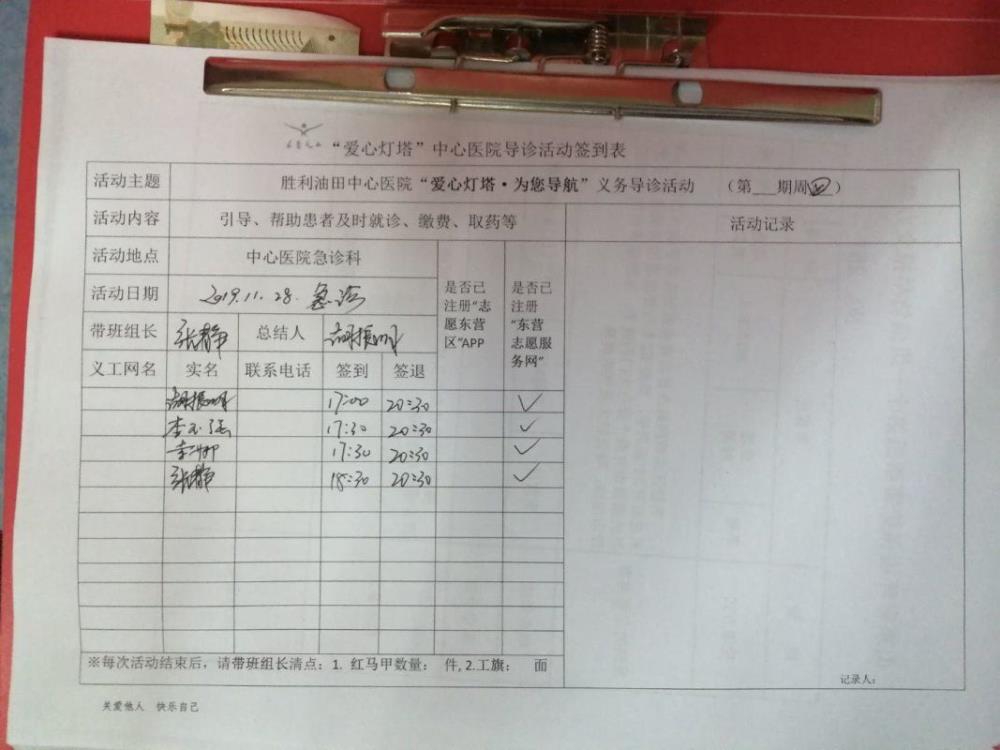 “爱心灯塔”中心医院导诊活动签到表
活动主题 胜利油田中心医院“爱心灯塔·为您导航”义务导诊活动 （第 期周四）
活动内容 引导、帮助患者及时就诊、缴费、取药等 活动记录
活动地点 中心医院急诊科
活动日期 2019.11.28. 急诊
是否已注册“志愿东营区”APP
是否已注册“东营志愿服务网”
带班组长 张静 总结人 胡振明
义工网名 实名 联系电话 签到 签退
胡振明 17:00 20:30 ✓
李玉强 17:30 20:30 ✓
17:30 20:30 ✓
张静 18:30 20:30 ✓
※每次活动结束后，请带班组长清点：1. 红马甲数量： 件, 2.工旗： 面
记录人：
关爱他人 快乐自己